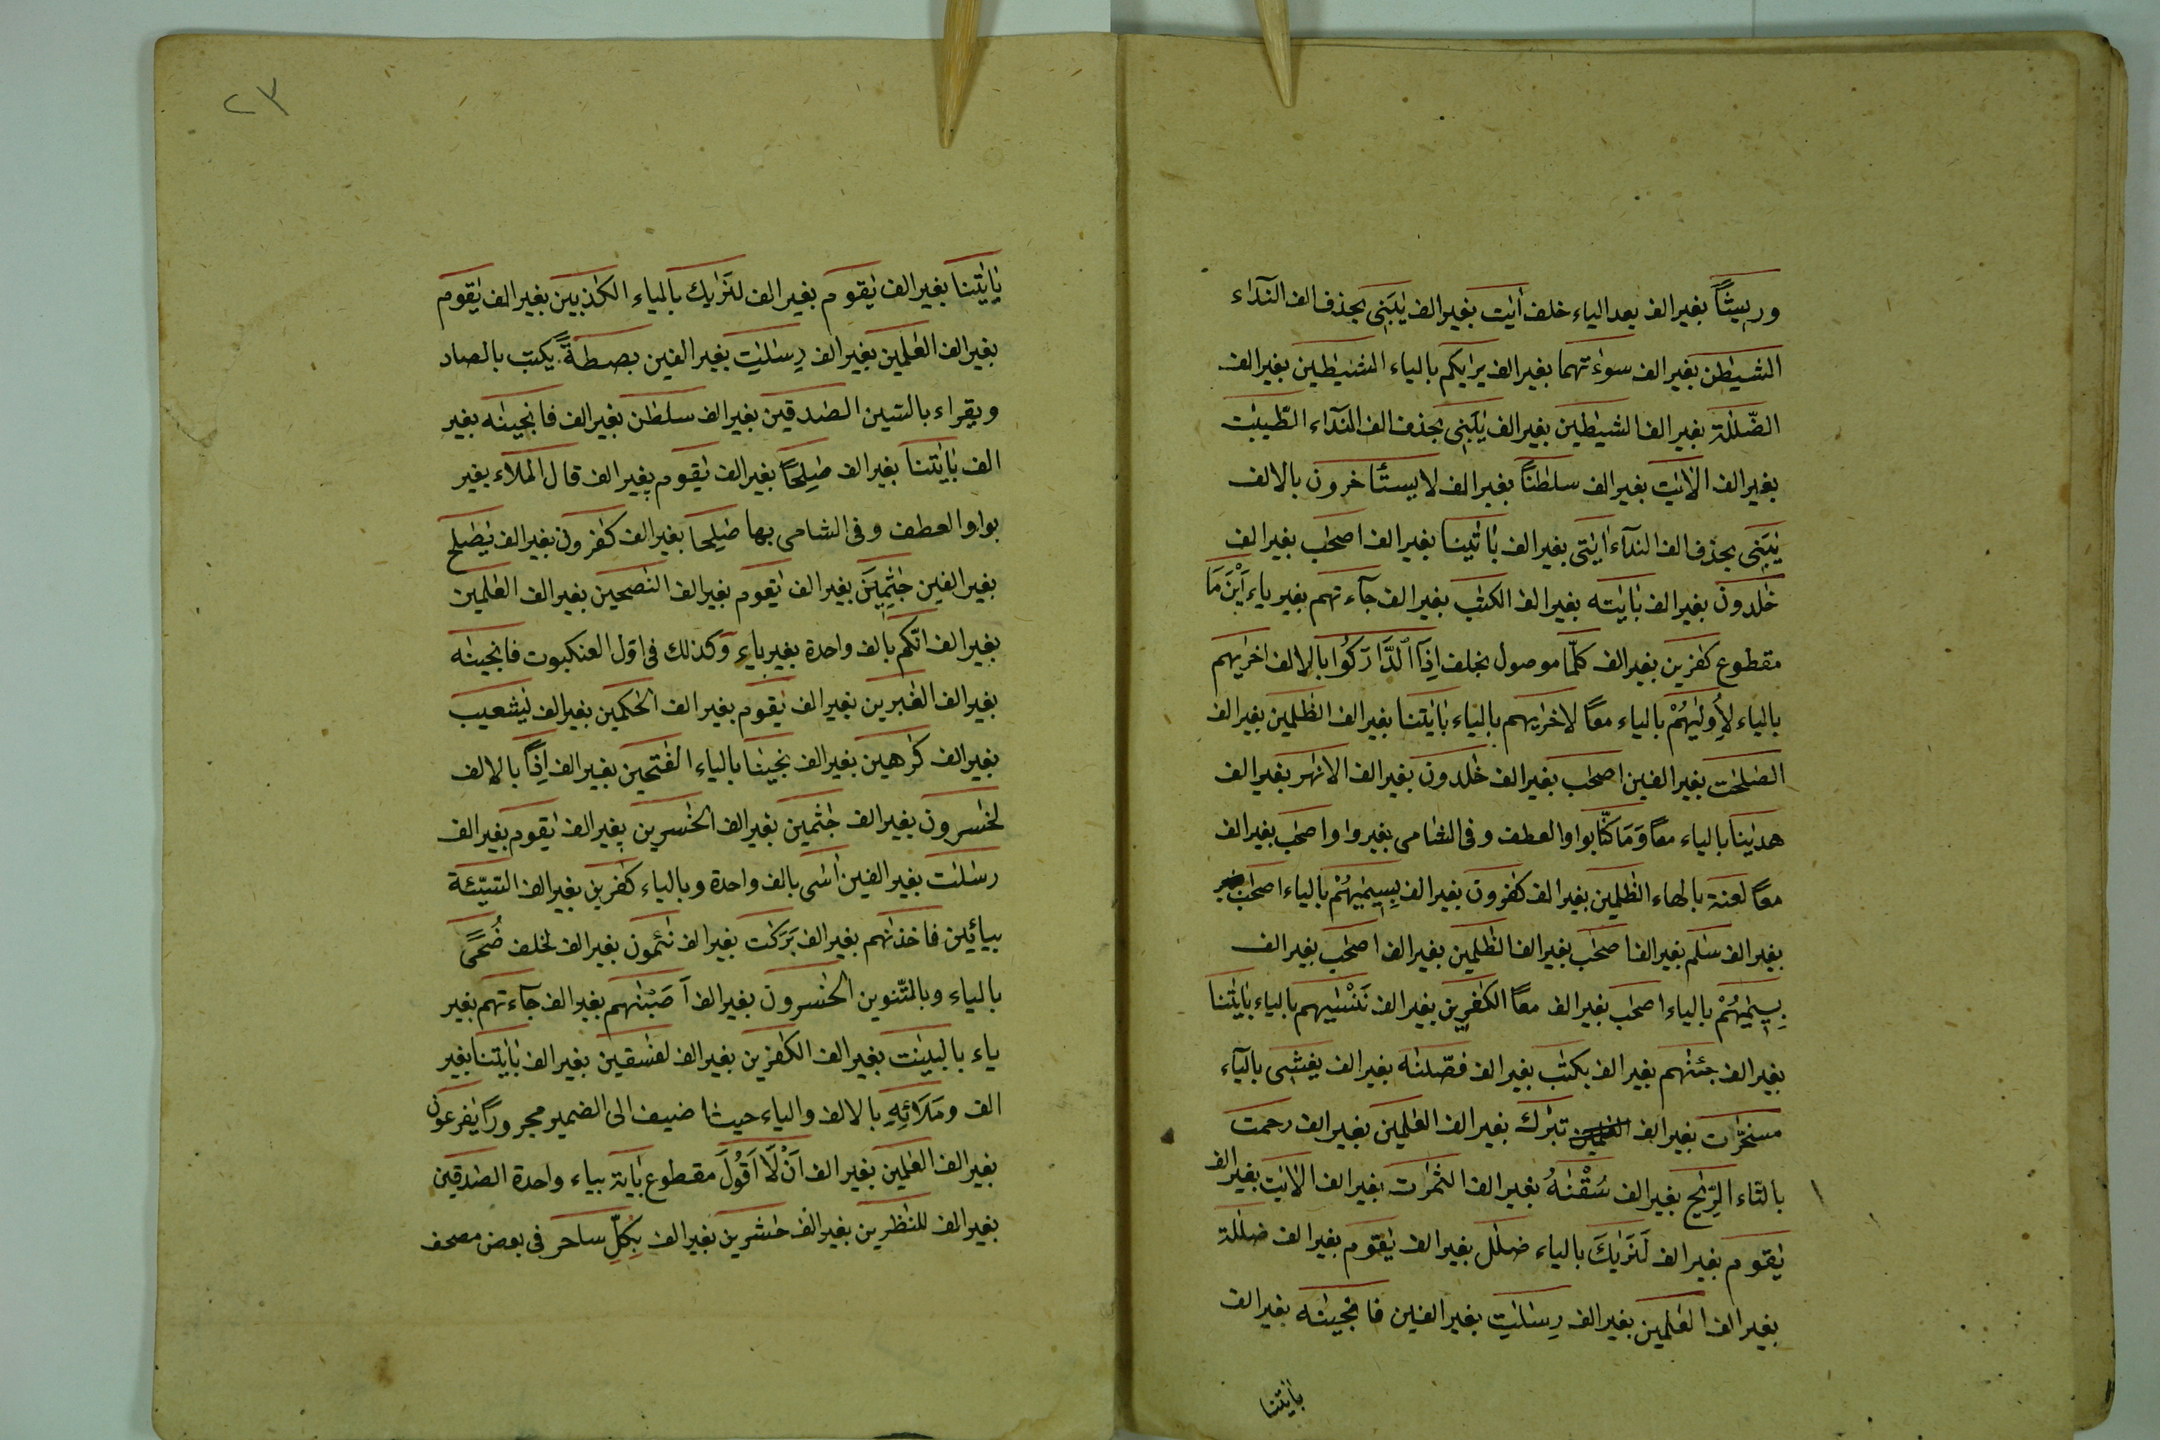 وريشًا بغير الف بعد الياء خلف اٰيٰت بغير الف يٰبَنِى بحذف الف النداء
الشيطٰن بغير الف سوءٰتهما بغير الف يرٰيكم بالياء الشيٰطين بغير الف
الضّلٰلة بغير الف الشيٰطين بغير الف يٰبَنِى بحذف الف النداء الطّيبٰت
بغير الف الاٰيٰت بغير الف سلطٰنًا بغير الف لا يستأخرون بالالف
يٰبَنِى بحذف الف النداء اٰيٰتى بغير الف باٰيٰتينا بغير الف اصحٰب بغير الف
خٰلدون بغير الف باٰيٰته بغير الف الكتٰب بغير الف جآءتهم بغير ياء اَيْنَ مَا
مقطوع كٰفرين بغير الف كلّما موصول بخلف اِذَا ٱلدَّارَكُوا بالالف اخرٰيهم
بالياء لِاُولٰيهُمْ بالياء معًا لاخرٰيهم بالياء باٰيٰتنا بغير الف الظّٰلمين بغير الف
الصّٰلحٰت بغير الفين اصحٰب بغير الف خٰلدون بغير الف الانهٰر بغير الف
هدٰينا بالياء معًا وَمَا كُنَّا بواو العطف وفى الشامى بغير واو اصحٰب بغير الف
معًا لعنة بالهاء الظّٰلمين بغير الف كٰفرون بغير الف بِسِيمٰيهُمْ بالياء اصحٰب
بغير الف سلٰم بغير الف اصحٰب بغير الف الظّٰلمين بغير الف اصحٰب بغير الف
بِسِيمٰيهُمْ بالياء اصحٰب بغير الف معًا الكٰفرين بغير الف نَنْسٰيهم بالياء باٰيٰتنا
بغير الف جئنٰهم بغير الف بكتٰب بغير الف فصّلنٰه بغير الف يغشى بالياء
مسخّرٰت بغير الف تبٰرك بغير الف العٰلمين بغير الف رحمت
بالتاء الرِّيٰح بغير الف سُقْنٰهُ بغير الف الثمرٰت بغير الف الاٰيٰت بغير الف
يٰقوم بغير الف لَنَرٰيكَ بالياء ضلٰل بغير الف يٰقوم بغير الف ضلٰلة
بغير الف العٰلمين بغير الف رِسٰلٰتِ بغير الفين فانجينٰه بغير الف
باٰيٰتنا
٢٣
باٰيٰتنا بغير الف يٰقوم بغير الف لنَرٰيك بالياء الكٰذبين بغير الف يٰقوم
بغير الف العٰلمين بغير الف رِسٰلٰتِ بغير الفين بصطةً يكتب بالصاد
ويقراء بالسين الصّٰدقين بغير الف سلطٰن بغير الف فانجينٰه بغير
الف باٰيٰتنا بغير الف صٰلِحًا بغير الف يٰقوم بغير الف قال الملاء بغير
بواو العطف وفى الشامى بها صٰلِحا بغير الف كٰفرون بغير الف يٰصٰلح
بغير الفين جٰثِمِيَن بغير الف يٰقوم بغير الف النّٰصحين بغير الف العٰلمين
بغير الف انّكم بالف واحدة بغير ياء وكذلك فى اوّل العنكبوت فانجينٰه
بغير الف الغٰبرين بغير الف يٰقوم بغير الف الحٰكمين بغير الف يٰشعيب
بغير الف كٰرهين بغير الف نجينٰا بالياء الفٰتحين بغير الف اِذًا بالالف
لخٰسرون بغير الف جٰثمين بغير الف الخٰسرين بغير الف يٰقوم بغير الف
رسٰلٰت بغير الفين اٰسى بالف واحدة وبالياء كٰفرين بغير الف السّيّئة
بيائين فاخذنٰهم بغير الف بَرَكٰت بغير الف نٰئمون بغير الف لخلف ضُحًى
بالياء وبالتّنوين الخٰسرون بغير الف اَصَبْنٰهم بغير الف جآءتهم بغير
ياء بالبيّنٰت بغير الف الكٰفرين بغير الف لفٰسقين بغير الف باٰيٰتنا بغير
الف ومَلَائِهٖ بالالف والياء حيث اضيف الى الضمير مجرورًا يٰفرعون
بغير الف العٰلمين بغير الف اَنْ لَا اَقُوْلَ مقطوع باٰية بياء واحدة الصّٰدقين
بغير الف للنّٰظرين بغير الف حٰشرين بغير الف بِكلّ ساحر فى بعض مصحف